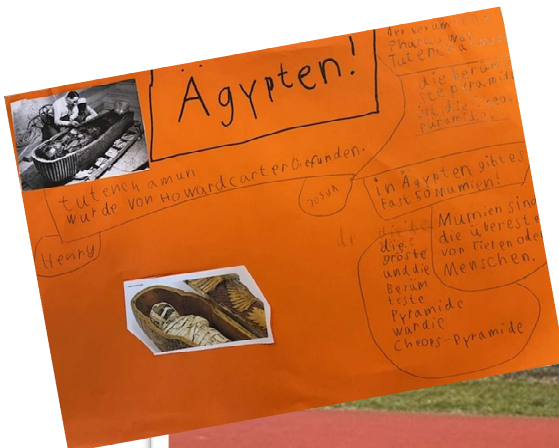 Ägypten!
der berüm
Pharao war
Tutench
die berüm
ste pyramide
ist die
pyramide.
tutench amun
wurde von Howard carter Gefunden.
Henry
in Ägypten gibt es
Fast 50 Mumien!
Mumien sind
die übereste
von Tieren oder
Menschen.
die
gröste
und die
Berüm
teste
Pyramide
war die
Cheops-Pyramide